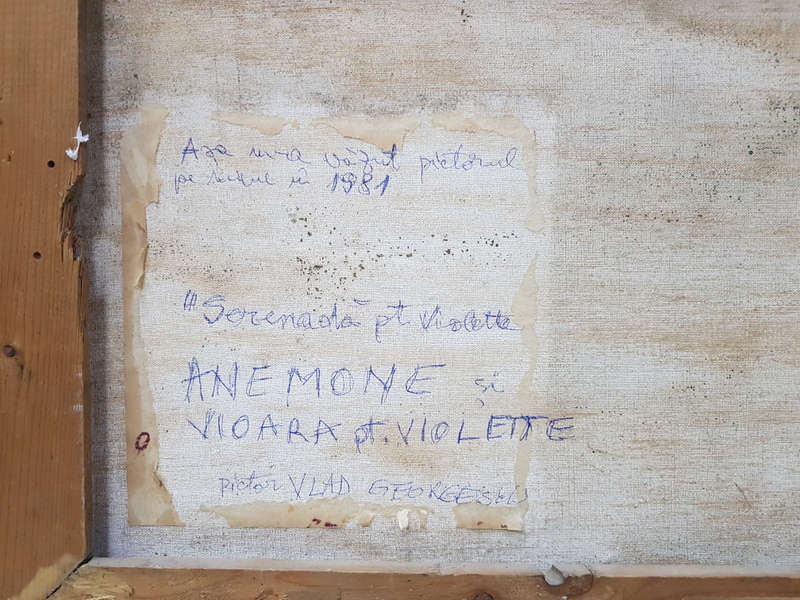 Așa m-a văzut pictorul
pe mine în 1981
"Serenadă" pt. Violette
ANEMONE și
VIOARA pt. VIOLETTE
pictor VLAD GEORGESCU